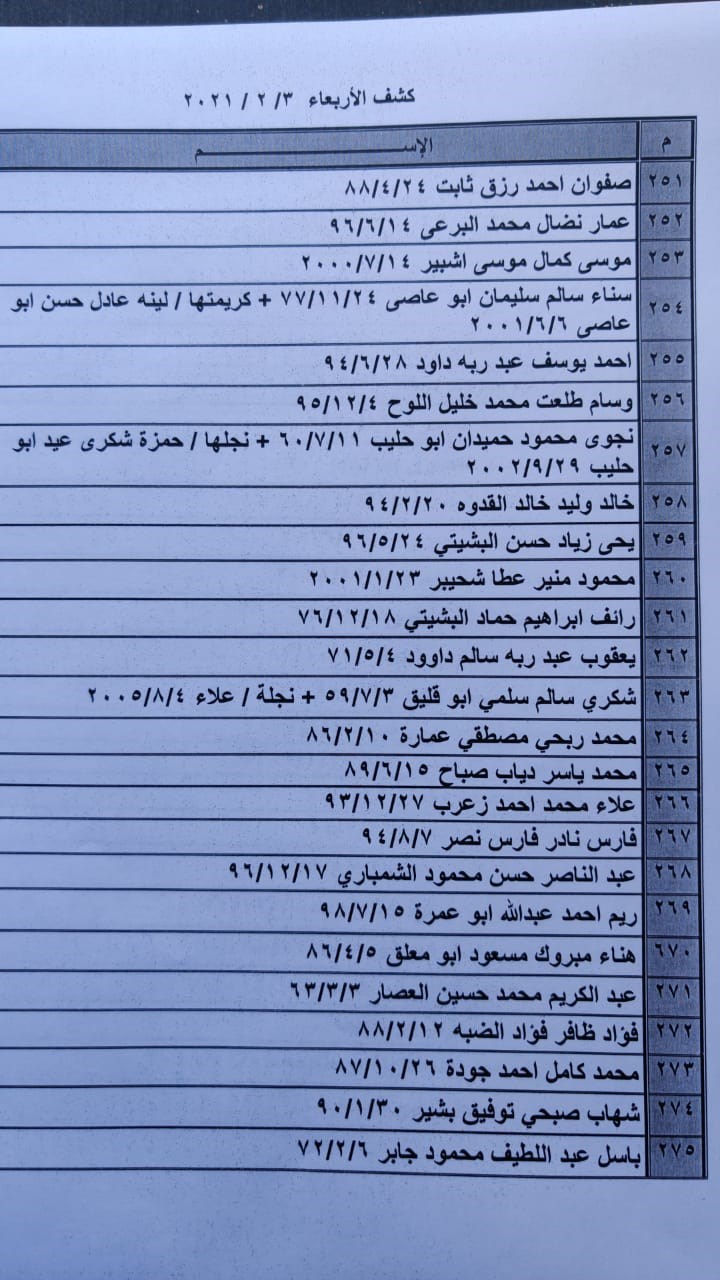 كشف الأربعاء ٢٠٢١ / ٢ /٣
م الإســـــم
٢٥١ صفوان احمد رزق ثابت ٨٨/٤/٢٤
٢٥٢ عمار نضال محمد البرعى ٩٦/٦/١٤
٢٥٣ موسى كمال موسى اشبير ٢٠٠٠/٧/١٤
٢٥٤ سناء سالم سليمان ابو عاصى ٧٧/١١/٢٤ + كريمتها / لينه عادل حسن ابو
عاصى ٢٠٠١/٦/٦
٢٥٥ احمد يوسف عبد ربه داود ٩٤/٦/٢٨
٢٥٦ وسام طلعت محمد خليل اللوح ٩٥/١٢/٤
٢٥٧ نجوى محمود حميدان ابو حليب ٦٠/٧/١١ + نجلها / حمزة شكرى عيد ابو
حليب ٢٠٠٢/٩/٢٩
٢٥٨ خالد وليد خالد القدوه ٩٤/٢/٢٠
٢٥٩ يحى زياد حسن البشيتي ٩٦/٥/٢٤
٢٦٠ محمود منير عطا شحيبر ٢٠٠١/١/٢٣
٢٦١ رائف ابراهيم حماد البشيتي ٧٦/١٢/١٨
٢٦٢ يعقوب عبد ربه سالم داوود ٧١/٥/٤
٢٦٣ شكري سالم سلمي ابو قليق ٥٩/٧/٣ + نجلة / علاء ٢٠٠٥/٨/٤
٢٦٤ محمد ربحي مصطقي عمارة ٨٦/٢/١٠
٢٦٥ محمد ياسر دياب صباح ٨٩/٦/١٥
٢٦٦ علاء محمد احمد زعرب ٩٣/١٢/٢٧
٢٦٧ فارس نادر فارس نصر ٩٤/٨/٧
٢٦٨ عبد الناصر حسن محمود الشمباري ٩٦/١٢/١٧
٢٦٩ ريم احمد عبدالله ابو عمرة ٩٨/٧/١٥
٦٧٠ هناء مبروك مسعود ابو معلق ٨٦/٤/٥
٢٧١ عبد الكريم محمد حسين العصار ٦٣/٣/٣
٢٧٢ فؤاد ظافر فؤاد الضبه ٨٨/٢/١٢
٢٧٣ محمد كامل احمد جودة ٨٧/١٠/٢٦
٢٧٤ شهاب صبحي توفيق بشير ٩٠/١/٣٠
٢٧٥ باسل عبد اللطيف محمود جابر ٧٢/٢/٦